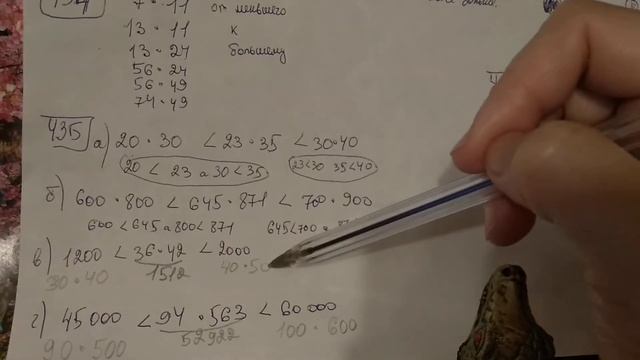 7 · 11 от меньшего
13 · 11 к
13 · 24 большему
56 · 24
56 · 49
74 · 49
435 а) 20 · 30 < 23 · 35 < 30 · 40
20 < 23 а 30 < 35 23<30 35<40
б) 600 · 800 < 645 · 871 < 700 · 900
600 < 645 а 800 < 871 645<700
в) 1200 < 36 · 42 < 2000
30 · 40 1512 40 · 50
г) 45 000 < 94 · 563 < 60 000
90 · 500 52922 100 · 600